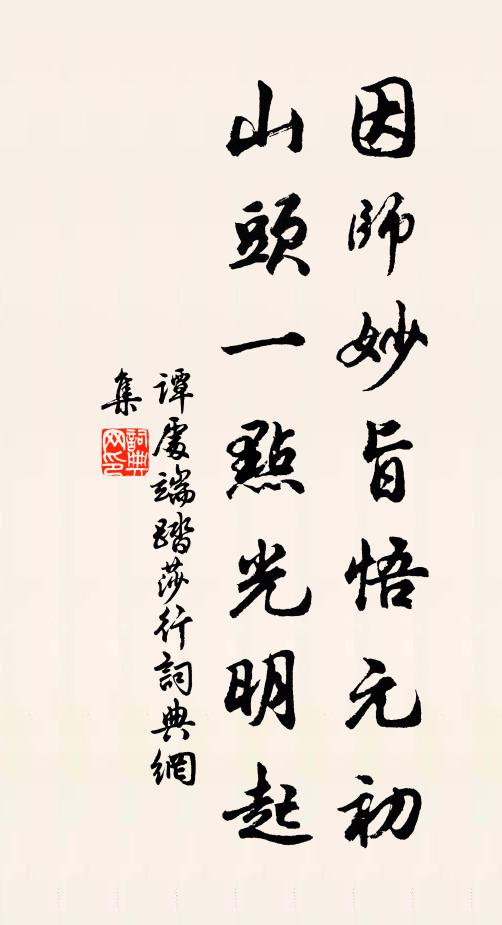 因師妙旨悟元初
山頭一點光明起
譚處端踏莎行詞典網
集
詞典網印